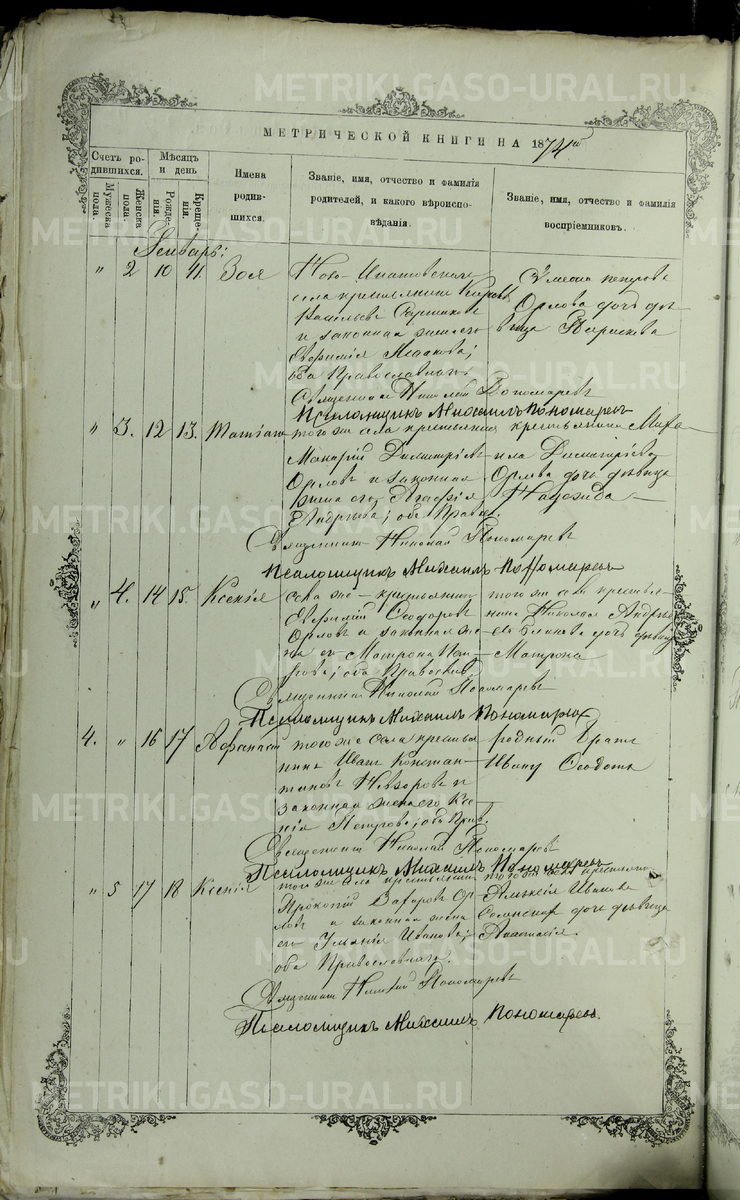 МЕТРИЧЕСКОЙ КНИГИ НА 1874й
Счетъ ро-
дившихся.
Мужеска
пола.
Женска
пола.
Мѣсяцъ
и день
Рожде-
нія.
Креще-
нія.
Имена
родив-
шихся.
Званіе, имя, отчество и фамилія
родителей, и какого вѣроиспо-
вѣданія.
Званіе, имя, отчество и фамилія
воспріемниковъ.
Январь:
" 2 10 11. Зоя
села крестьянинъ
и законная жена его
Евфимія
оба Православнаго
Священникъ Николай Пономаревъ
Псаломщикъ Михаилъ Пономаревъ
Орлова дочь дѣ-
вица Параскева
" 3. 12 13.
того же села крестьянинъ
Макарій Димитріевъ
Орловъ и законная
жена его Агафія
Андреева; оба Правос.
Священникъ Николай Пономаревъ
Псаломщикъ Михаилъ Пономаревъ
крестьянина Миха-
ила Димитріева
Орлова дочь дѣвица
Надежда
" 4. 14 15. Ксенія
села же крестьянинъ
Евфимій Ѳеодоровъ
Орловъ и законная же-
на его Матрона
оба Православ.
Священникъ Николай Пономаревъ
Псаломщикъ Михаилъ Пономаревъ
того же села крестья-
нина Николая Андрее-
дочь дѣвица
Матрона
4. " 16 17 Афанасій
того же села крестья-
нинъ Иванъ Констан-
тиновъ и
законная жена его Ксе-
нія Петрова; оба Прав.
Священникъ Николай Пономаревъ
Псаломщикъ Михаилъ Пономаревъ
родный братъ
" 5 17 18 Ксенія
того же села крестьянинъ
Прокопій Ор-
ловъ и законная жена
его Ульянія Иванова;
оба Православнаго.
Священникъ Николай Пономаревъ
Псаломщикъ Михаилъ Пономаревъ
того же села крестьянина
Алексія Иванова
дочь дѣвица
Анастасія.
METRIKI.GASO-URAL.RU